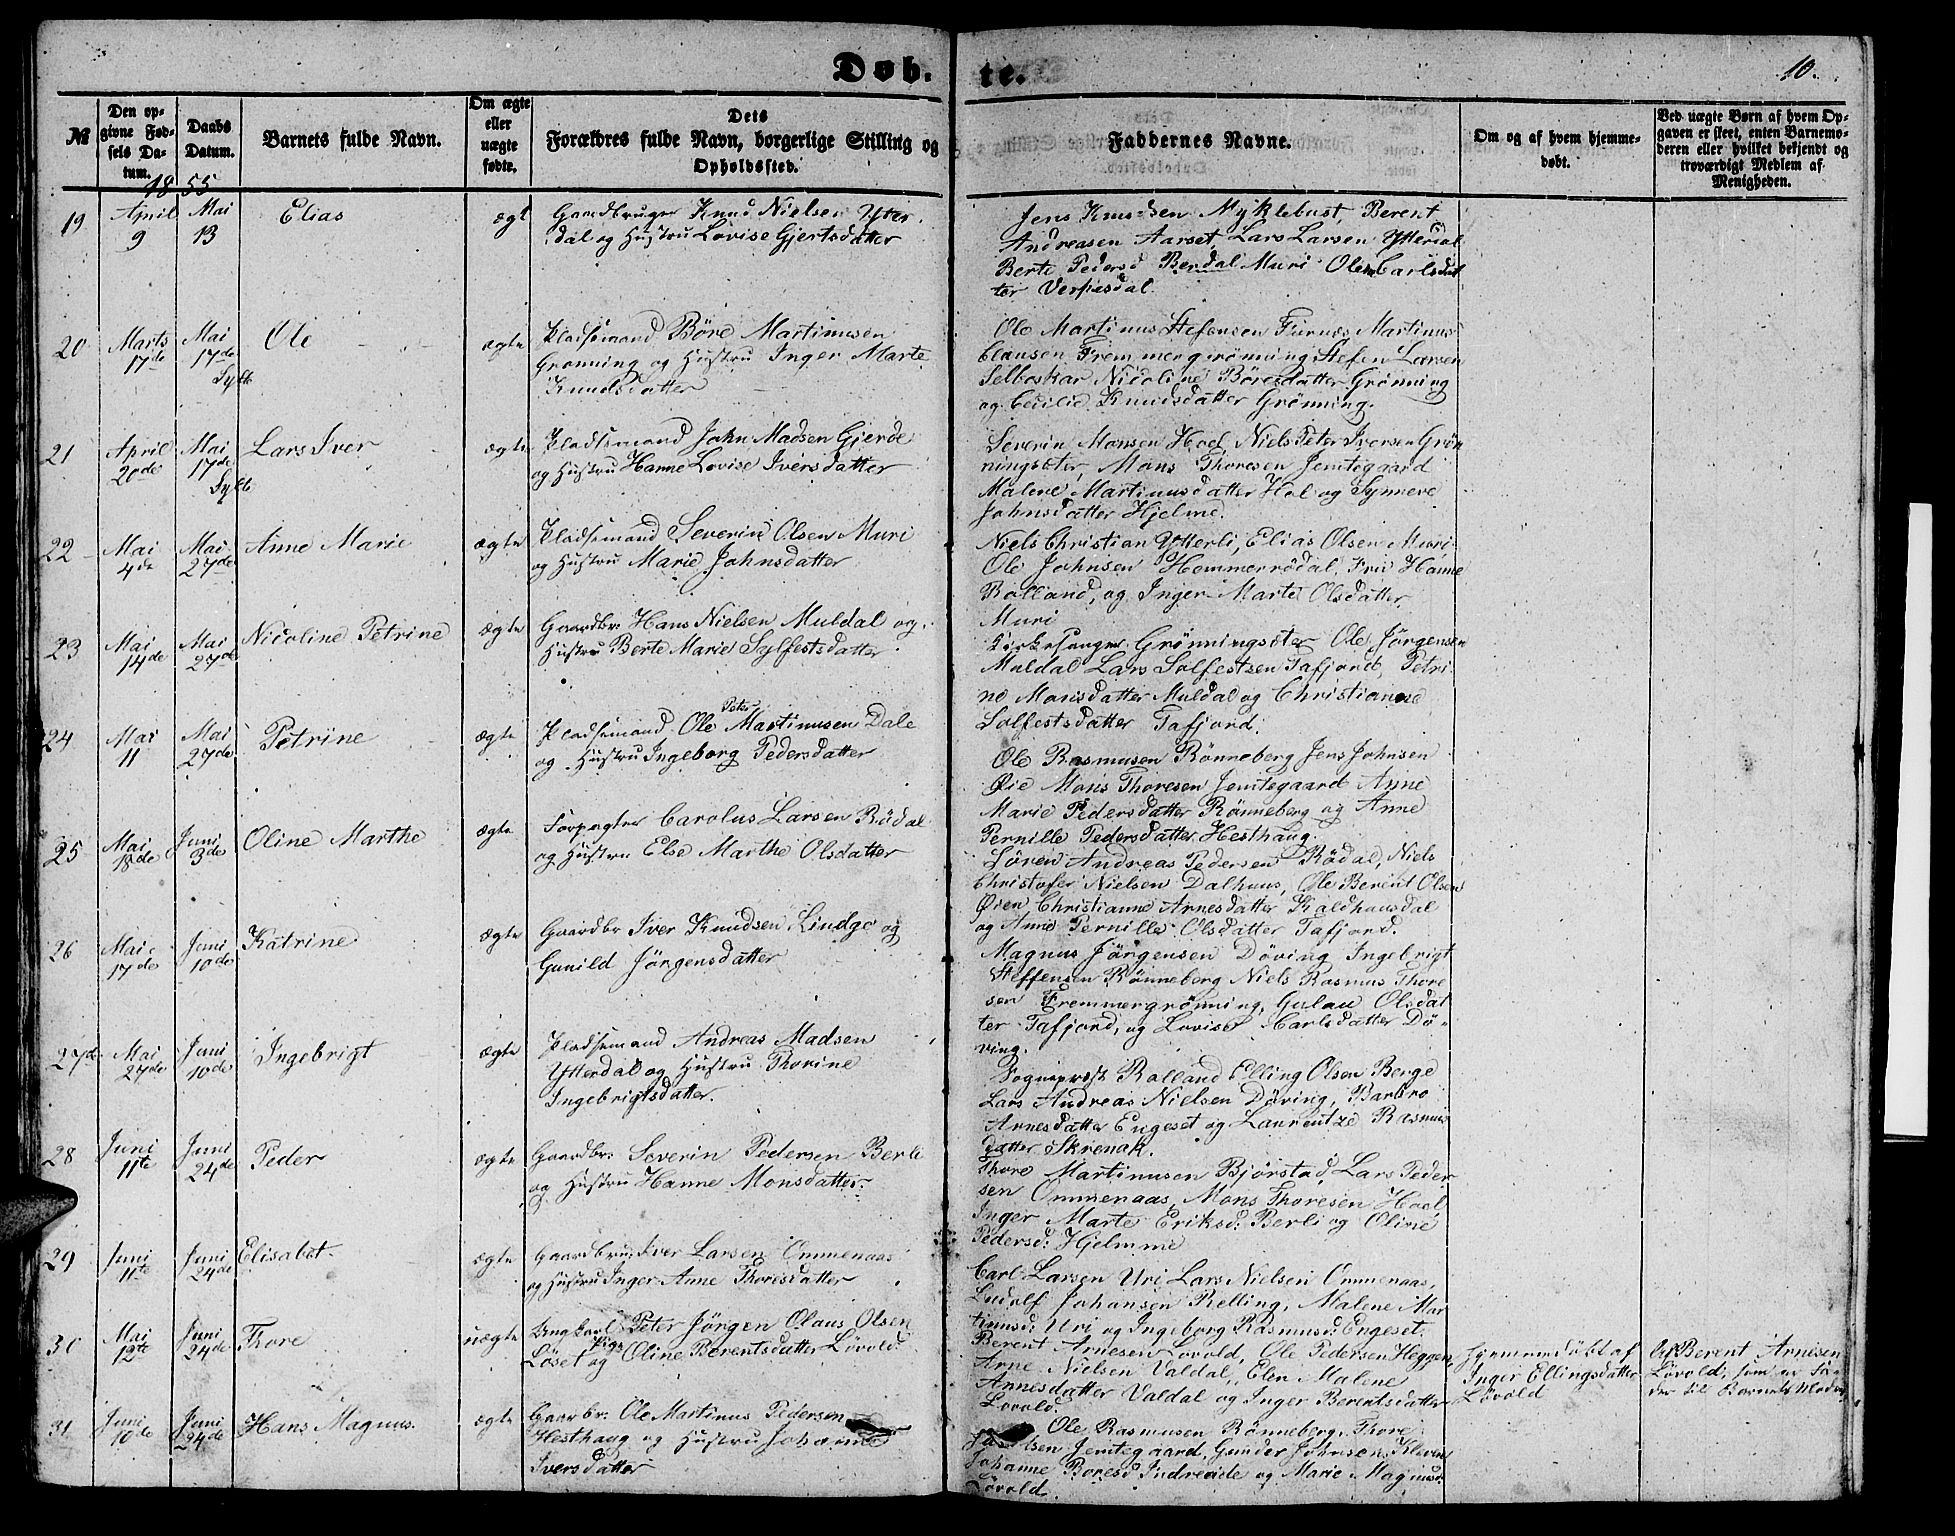 Døb-
te.
10.
№
Den op-
givne Fød-
sels Da-
tum.
Daabs
Datum.
Barnets fulde Navn.
Om ægte
eller
uægte
fødte.
Dets
Forældres fulde Navn, borgerlige Stilling og
Opholdssted.
Faddernes Navne.
Om og af hvem hjemme-
døbt.
Ved uægte Børn af hvem Op-
gaven er skeet, enten Barnemo-
deren eller hvilket bekjendt og
troværdigt Medlem af
Menigheden.
1855
19
April
9
Mai
13
Elias
ægt
Gaardbruger Knud Nielsen Ytter
dal og Hustru Lovise Gjertsdatter
Jens Knudsen Myklebust, Berent
Andreasen Aarset, Lars Larsen Ytterdal
Berte Pedersd Berdal Muri Olea Carlsdat
ter Verpesdal.
20
Marts
17de
Mai
17de
Sylte
Ole
ægte
Pladsemand Böre Martinusen
Grønning og Hustru Inger Marte
Knudsdatter
Ole Martinus Stefensen Furnæs Martinus
Clausen Fremmergrönning, Stefen Larsen
Selboskar Nicoline Böresdatter Grønning
og Cecilie Knudsdatter Grønning.
21
April
20de
Mai
17de
Sylte
Lars Iver
ægte
Pladsemand John Madsen Gjerde
og Hustru Hanne Lovise Iversdatter
Severin Monsen Hoel Niels Peter Iversen Grøn
ningsæter, Mons Thoresen Jemtegaard
Malene Martinusdatter Hol og Synneve
Johnsdatter Hjelme.
22
Mai
4de
Mai
27de
Anne Marie
ægte
Pladsemand Severin Olsen Muri
og Hustru Marie Johnsdatter
Niels Christian Ytterli, Elias Olsen Muri
Ole Johnsen Hemmerrödal, Fru Hanne
Rolland, og Inger Marte Olsdatter
Muri
23
Mai
14de
Mai
27de
Nicoline Petrine
ægte
Gaardbr: Hans Nielsen Muldal og
Hustru Berte Marie Sylfestsdatter
Kirkesanger Grønningsæter Ole Jørgensen
Muldal Lars Solfestsen Tafjord, Petri
ne Monsdatter Muldal og Christianne
Solfestsdatter Tafjord.
24
Mai
11
Mai
27de
Petrine
ægte
Peter
Pladsemand Ole Martinusen Dale
og Hustru Ingeborg Pedersdatter
Ole Rasmusen Rönneberg Jens Johnsen
Øie Mons Thoresen Jemtegaard Anne
Marie Pedersdatter Rönneberg og Anne
Pernille Pedersdatter Hesthaug.
25
Mai
18de
Juni
3de
Oline Marthe
ægte
Forpagter Carolus Larsen Rødal
og Hustru Else Marthe Olsdatter
Sören Andreas Pedersen Rödal, Niels
Christofer Nielsen Dalhuus, Ole Berent Olsen
Øien Christianne Arnesdatter Kaldhusdal
og Anne Pernille Olsdatter Tafjord.
26
Mai
17de
Juni
10de
Katrine
ægte
Gaardbr Iver Knudsen Lindge og
Gunild Jörgensdatter
Magnus Jörgensen Döving Ingebrigt
Steffensen Rönneberg Niels Rasmus Thore
sen Fremmergrönning, Gulau Olsdat
ter Tafjord, og Lovise Carlsdatter Dö-
ving.
27d
Mai
27de
Juni
10de
Ingebrigt
ægte
Pladsemand Andreas Madsen
Ytterdal og Hustru Thorine
Ingebrigtsdatter.
Sognepræst Rolland Elling Olsen Berge
Lars Andreas Nielsen Döving, Barbro
Arnesdatter Engeset og Laurentze Rasmus
datter Skrenak.
28
Juni
11te
Juni
24de
Peder
ægte
Gaardbr: Severin Pedersen Berli
og Hustru Hanne Monsdatter.
Thore Martinusen Bjørstad, Lars Peder
sen Ommenaas, Mons Thoresen Hoel
Inger Marte Eriksd: Berli og Oline
Pedersd: Hjelmme
29
Juni
11te
Juni
24de
Elisabet.
ægte
Gaardbru: Iver Larsen Ommenaas
og Hustru Inger Anne Thoresdatter
Carl Larsen Uri Lars Nielsen Ommenaas,
Ludolf Johansen Relling, Malene Mar
tinusd: Uri og Ingeborg Rasmusd: Engeset.
30
Mai
12te
Juni
24de
Thore
uægte
Ungkarl Peter Jörgen Olaus Olsen
Pige
Löset og Oline Berentsdatter Lövold.
Berent Arnesen Lovold, Ole Pedersen Heggen,
Arne Nielsen Valdal, Elen Malene
Arnesdatter Valdal og Inger Berentsdatter
Lövold.
Hjemmedöbt af
Inger Ellingsdatter
Lövold
Af Berent Arnesen
Lövold, som er Fa-
der til Barnets Moder
31
Juni
10de
Juni
24de
Hans Magnus.
ægte
Gaarbr: Ole Martinus Pedersen
Hesthaug og Hustru Johanne
Iversdatter
Ole Rasmusen Rønneberg, Thore
Olsen Jemtegaard, Gunder Johnsen Kleven
Johanne Boresd Indreeide og Marie Magnusd:
Lövold